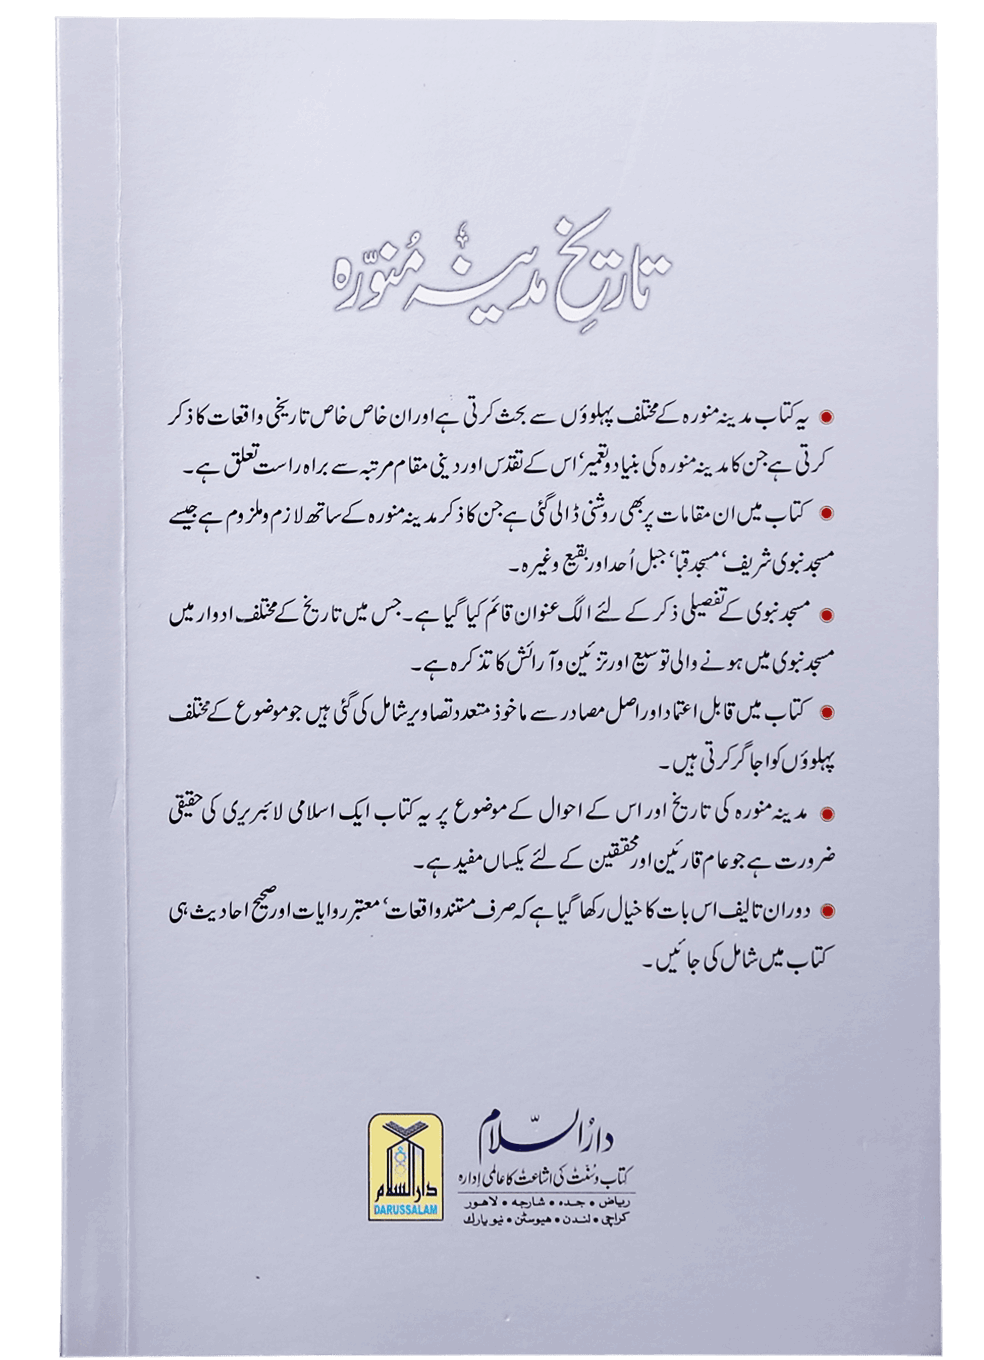 تاریخ مدینہ منوّرہ
یہ کتاب مدینہ منورہ کے مختلف پہلوؤں سے بحث کرتی ہے اور ان خاص خاص تاریخی واقعات کا ذکر
کرتی ہے جن کا مدینہ منورہ کی بنیاد و تعمیر، اس کے تقدس اور دینی مقام مرتبہ سے براہ راست تعلق ہے۔
کتاب میں ان مقامات پر بھی روشنی ڈالی گئی ہے جن کا ذکر مدینہ منورہ کے ساتھ لازم و ملزوم ہے جیسے
مسجد نبوی شریف، مسجد قبا، جبل اُحد اور بقیع وغیرہ۔
مسجد نبوی کے تفصیلی ذکر کے لئے الگ عنوان قائم کیا گیا ہے۔ جس میں تاریخ کے مختلف ادوار میں
مسجد نبوی میں ہونے والی توسیع اور تزئین و آرائش کا تذکرہ ہے۔
کتاب میں قابل اعتماد اور اصل مصادر سے ماخوذ متعدد تصاویر شامل کی گئی ہیں جو موضوع کے مختلف
پہلوؤں کو اجاگر کرتی ہیں۔
مدینہ منورہ کی تاریخ اور اس کے احوال کے موضوع پر یہ کتاب ایک اسلامی لائبریری کی حقیقی
ضرورت ہے جو عام قارئین اور محققین کے لئے یکساں مفید ہے۔
دوران تالیف اس بات کا خیال رکھا گیا ہے کہ صرف مستند واقعات، معتبر روایات اور صحیح احادیث ہی
کتاب میں شامل کی جائیں۔
دارُالسّلام
کتاب و سُنّت کی اشاعت کا عالمی اِدارہ
ریاض • جدہ • شارجہ • لاہور
کراچی • لندن • ہیوسٹن • نیو یارک
دارالسلام
DARUSSALAM